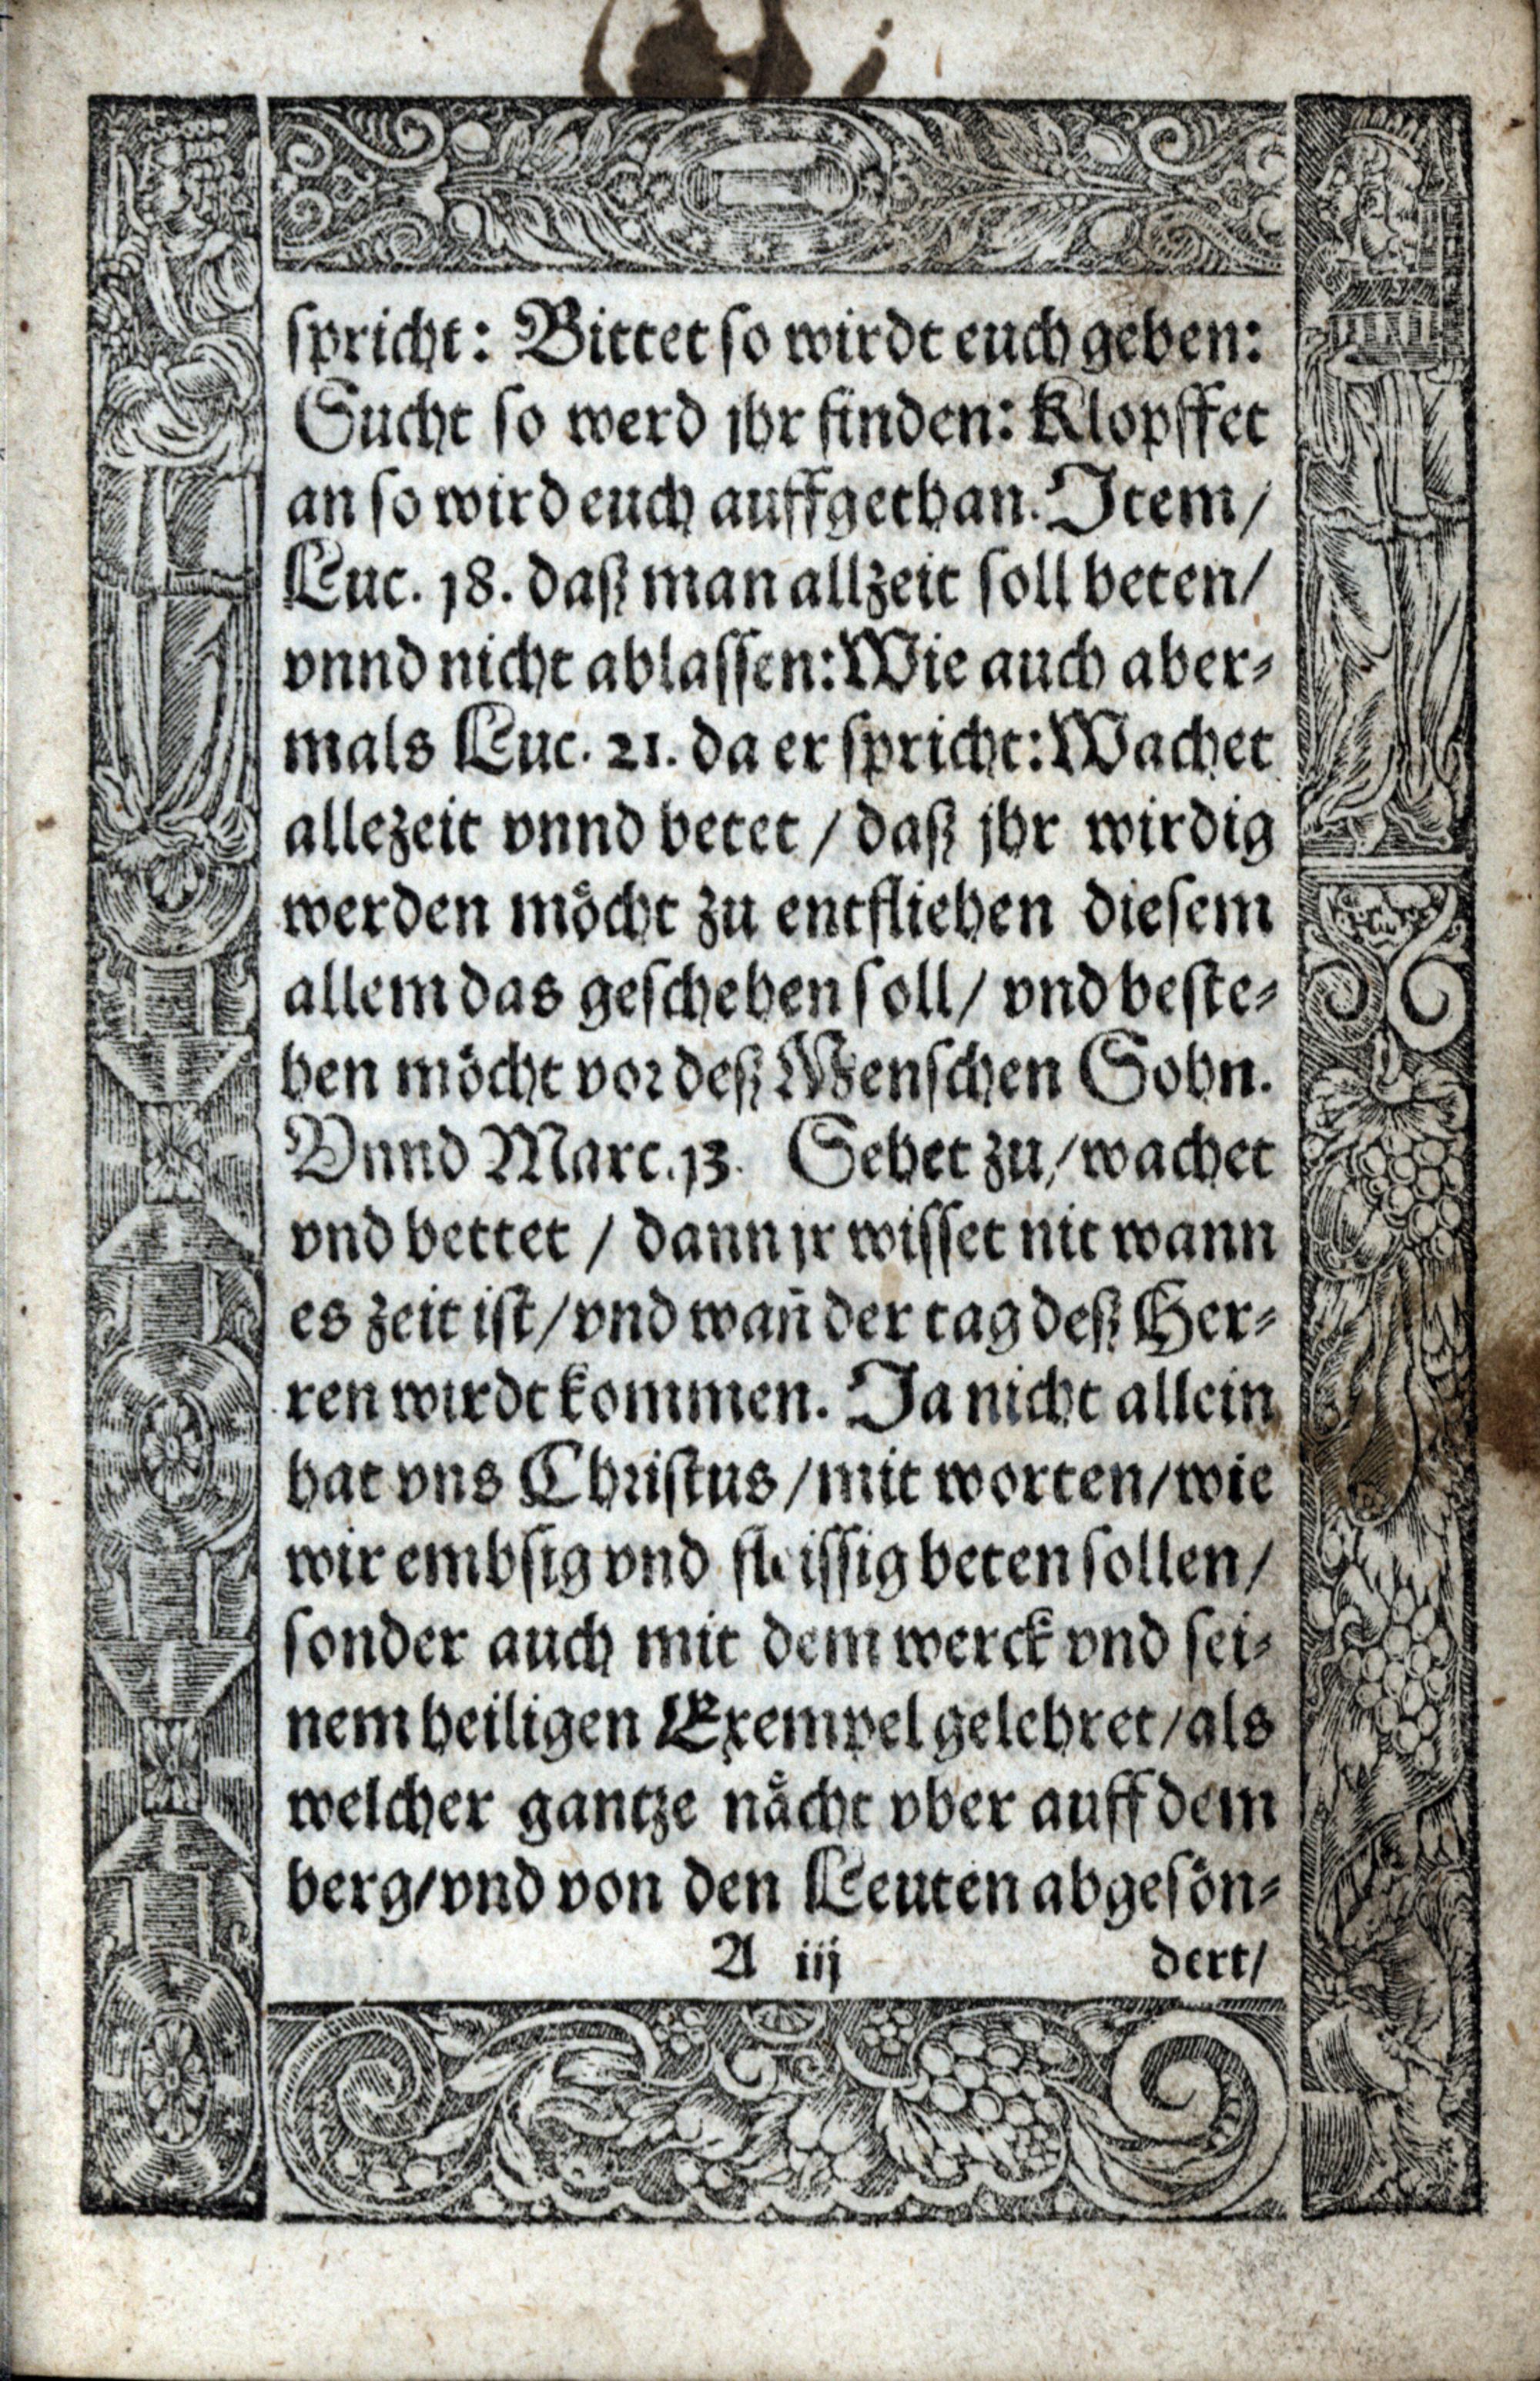 spricht: Bittet so wirdt euch geben:
Sucht so werd jhr finden: Klopffet
an so wird euch auffgethan. Item/
Luc. 18. daß man allzeit soll beten/
vnnd nicht ablassen: Wie auch aber-
mals Luc. 21. da er spricht: Wachet
allezeit vnnd betet / daß jhr wirdig
werden möcht zu entfliehen diesem
allem das geschehen soll/ vnd beste-
hen möcht vor deß Menschen Sohn.
Vnnd Marc. 13. Sehet zu/ wachet
vnd bettet / dann jr wisset nit wann
es zeit ist/ vnd wañ der tag deß Her-
ren wirdt kommen. Ja nicht allein
hat vns Christus / mit worten/ wie
wir embsig vnd fleissig beten sollen/
sonder auch mit dem werck vnd sei-
nem heiligen Exempel gelehret/ als
welcher gantze nächt vber auff dem
berg/ vnd von den Leuten abgesön-
A iij dert/